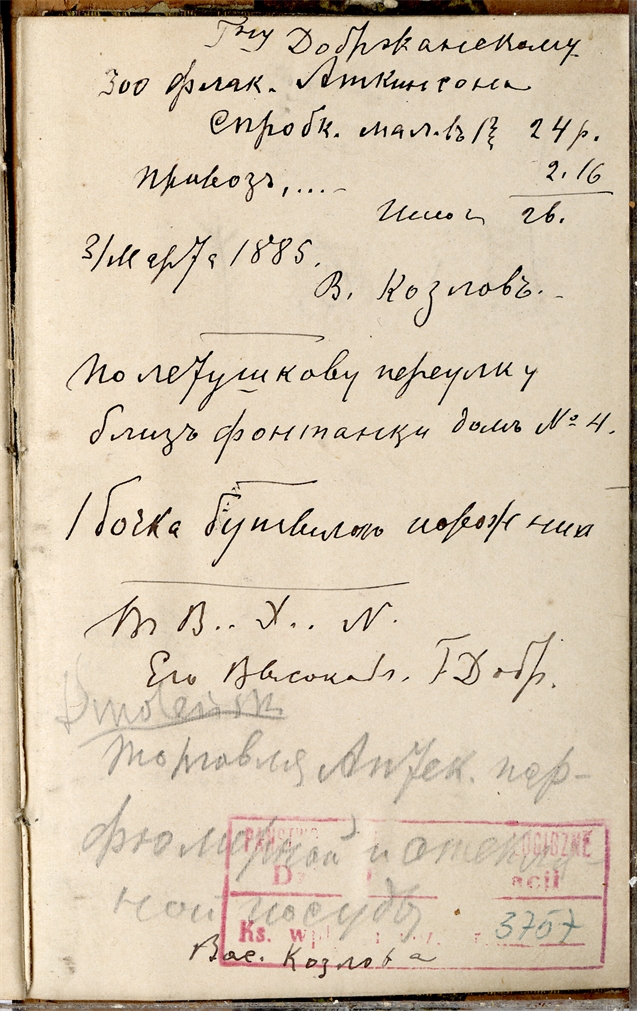 Гну Добржанскому
300 флак. Аткинсона
Спробк. мал. въ 24 р.
привозъ,.... 2.16
Итого 26.
3/Марта 1885.
В. Козловъ.
По летушкову переулку
близъ фонтанки домъ № 4.
1 бочка бутылою порожния
В.. Х.. N.
Его Высокобл. Г Добр.
Торговля Аптек. пар-
фюмерной и стеклян-
ной посуды
OGICZNE
acji
Ks. 3757
Вас. Козлова